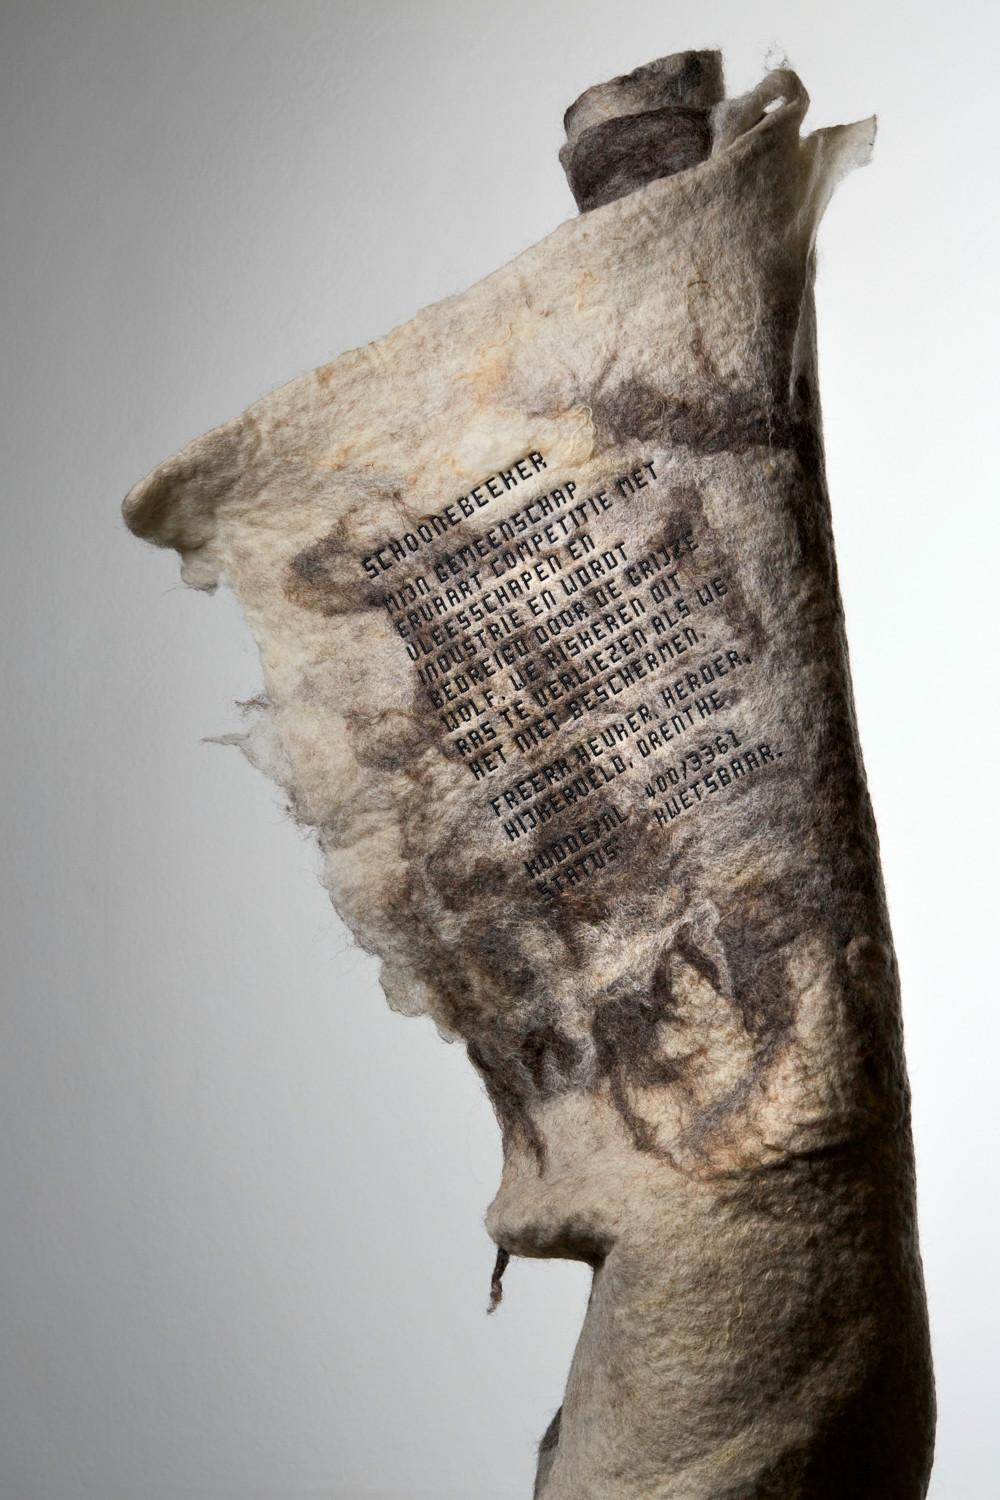 SCHOONEBEEKER
MIJN GEMEENSCHAP
ERVAART COMPETITIE MET
VLEESSCHAPEN EN
INDUSTRIE EN WORDT
BEDREIGD DOOR DE GRIJZE
WOLF. WE RISKEREN DIT
RAS TE VERLIEZEN ALS WE
HET NIET BESCHERMEN.
HEUKER, HERDER,
HIJKERVELD, DRENTHE.
KUDDE/NL 400/3361
STATUS KWETSBAAR.